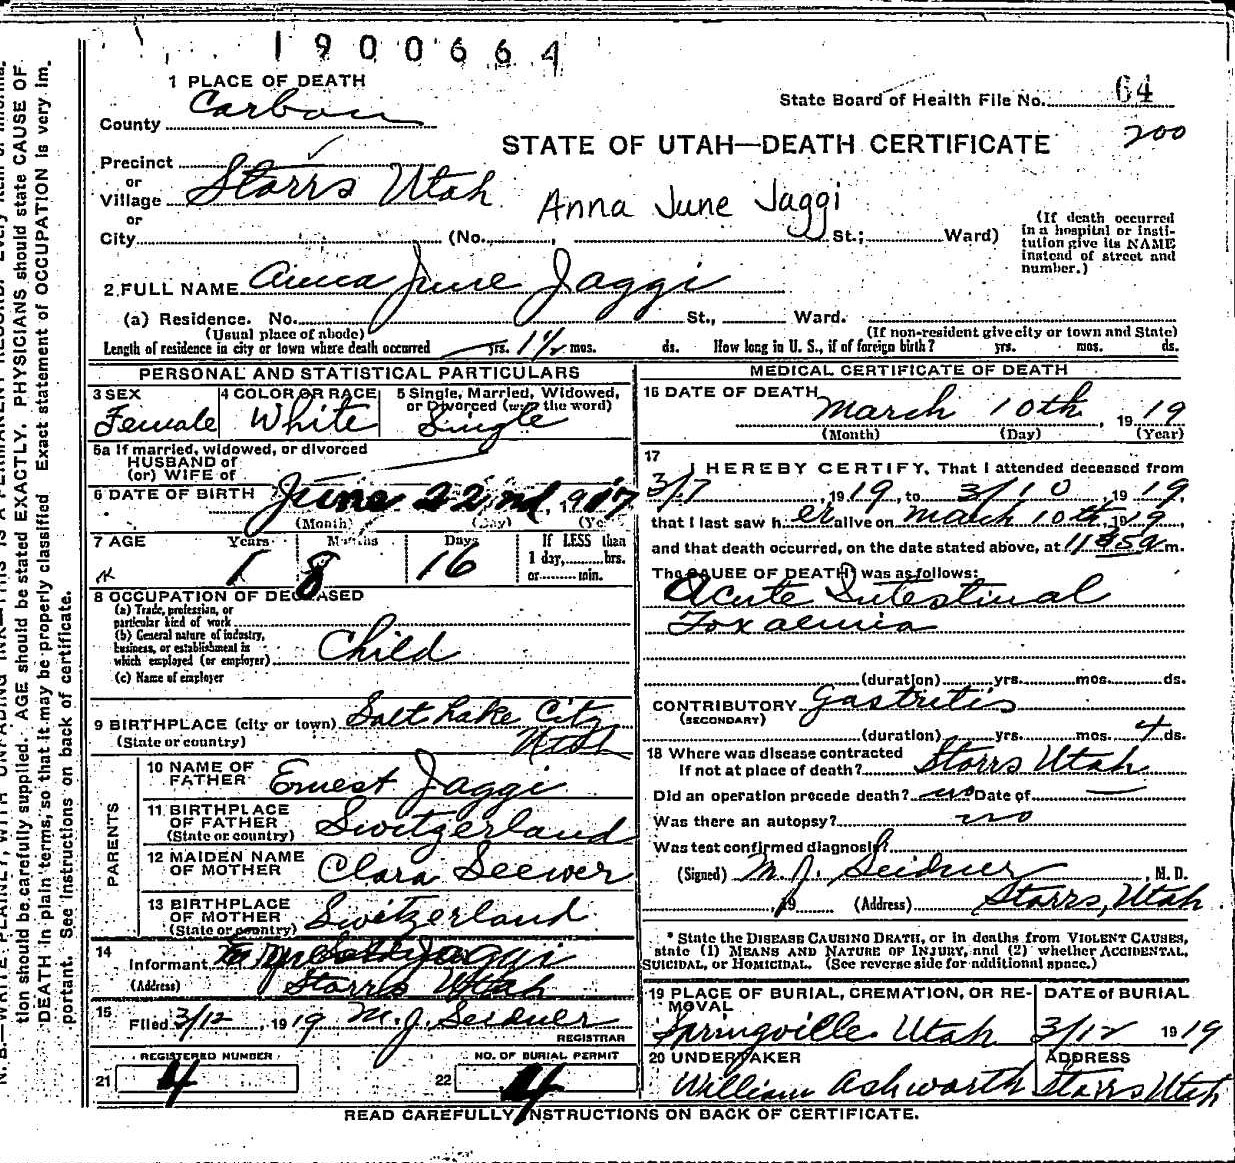 1900664
1 PLACE OF DEATH
State Board of Health File No. 64
County Carbon
STATE OF UTAH—DEATH CERTIFICATE 200
Precinct
or
Village Storrs Utah
Anna June Jaggi
or
City (No. , St.; Ward)
(If death occurred in a hospital or institution give its NAME instead of street and number.)
2 FULL NAME Anna June Jaggi
(a) Residence. No. St., Ward.
(Usual place of abode) (If non-resident give city or town and State)
Length of residence in city or town where death occurred yrs. 1½ mos. ds. How long in U. S., if of foreign birth? yrs. mos. ds.
PERSONAL AND STATISTICAL PARTICULARS
3 SEX 4 COLOR OR RACE 5 Single, Married, Widowed,
or Divorced (write the word)
Female White Single
5a If married, widowed, or divorced
HUSBAND of
(or) WIFE of
6 DATE OF BIRTH June 22nd, 1917
(Month) (Day) (Year)
7 AGE Years Months Days If LESS than
1 day, hrs.
or min.
1 8 16
8 OCCUPATION OF DECEASED
(a) Trade, profession, or
particular kind of work
(b) General nature of industry,
business, or establishment in
which employed (or employer) Child
(c) Name of employer
9 BIRTHPLACE (city or town) Salt Lake City
(State or country) Utah
PARENTS
10 NAME OF
FATHER Ernest Jaggi
11 BIRTHPLACE
OF FATHER
(State or country) Switzerland
12 MAIDEN NAME
OF MOTHER Clara Seewer
13 BIRTHPLACE
OF MOTHER
(State or country) Switzerland
14
Informant Jaggi
(Address) Storrs Utah
15
Filed 3/12, 1919 M. J. Seidner
REGISTRAR
REGISTERED NUMBER NO. OF BURIAL PERMIT
21 4 22 4
MEDICAL CERTIFICATE OF DEATH
16 DATE OF DEATH March 10th, 1919
(Month) (Day) (Year)
17
I HEREBY CERTIFY, That I attended deceased from
3/7, 1919, to 3/10, 1919,
that I last saw her alive on March 10th, 1919,
and that death occurred, on the date stated above, at m.
The CAUSE OF DEATH was as follows:
Acute Intestinal
Toxaemia
(duration) yrs. mos. ds.
CONTRIBUTORY Gastritis
(SECONDARY)
(duration) yrs. mos. 4 ds.
18 Where was disease contracted
If not at place of death? Storrs Utah
Did an operation precede death? no Date of
Was there an autopsy? no
Was test confirmed diagnosis?
(Signed) M. J. Seidner, M. D.
, 19 (Address) Storrs, Utah
* State the DISEASE CAUSING DEATH, or in deaths from VIOLENT CAUSES,
state (1) MEANS AND NATURE OF INJURY, and (2) whether ACCIDENTAL,
SUICIDAL, or HOMICIDAL. (See reverse side for additional space.)
19 PLACE OF BURIAL, CREMATION, OR RE-
MOVAL DATE of BURIAL
Springville Utah 3/12 1919
20 UNDERTAKER ADDRESS
William Ashworth Storrs Utah
READ CAREFULLY INSTRUCTIONS ON BACK OF CERTIFICATE.
tion should be carefully supplied. AGE should be stated EXACTLY. PHYSICIANS should state CAUSE OF
DEATH in plain terms, so that it may be properly classified. Exact statement of OCCUPATION is very im-
portant. See instructions on back of certificate.